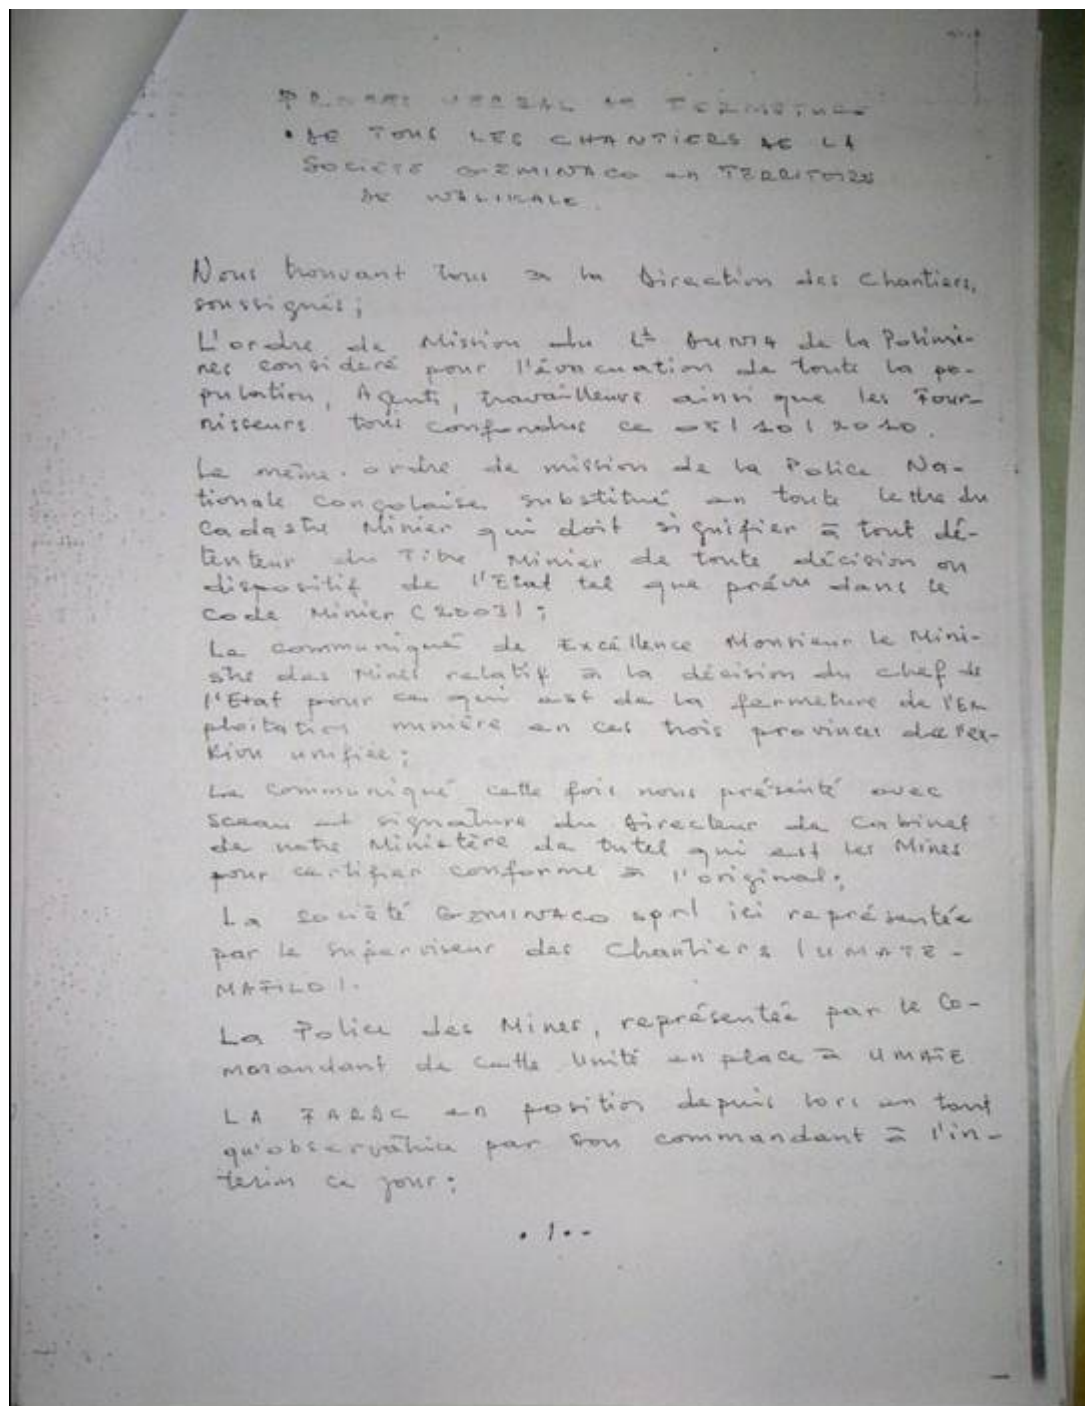 PROCES VERBAL DE FERMETURE
• DE TOUS LES CHANTIERS DE LA
SOCIETE GEMINACO en TERRITOIRE
DE WALIKALE.
Nous trouvant tous à la Direction des Chantiers,
soussignés ;
L'ordre de Mission du Lt de la Polimi-
nes considéré pour l'évacuation de toute la po-
pulation, Agents, travailleurs ainsi que les Four-
nisseurs tous confondus ce 05/10/2010.
Le même ordre de mission de la Police Na-
tionale Congolaise substitué en toute lettre du
Cadastre Minier qui doit signifier à tout dé-
tenteur du Titre Minier de toute décision ou
dispositif de l'Etat tel que prévu dans le
Code Minier (2003) ;
Le communiqué de Excéllence Monsieur le Mini-
stre des Mines relatif à la décision du chef de
l'Etat pour ce qui est de la fermeture de l'Ex
ploitation minière en ces trois provinces de l'ex-
Kivu unifiée ;
Le Communiqué cette fois nous présenté avec
Sceau et signature du Directeur de Cabinet
de notre Ministère de tutel qui est les Mines
pour certifier conforme à l'original ;
La société GEMINACO sprl ici représentée
par le superviseur des Chantiers (UMATE-
MAFILO).
La Police des Mines, représentée par le Co-
mmandant de cette Unité en place à UMATE
LA FARDC en position depuis lors en tant
qu'observatrice par son commandant à l'in-
terim ce jour ;
• / • -